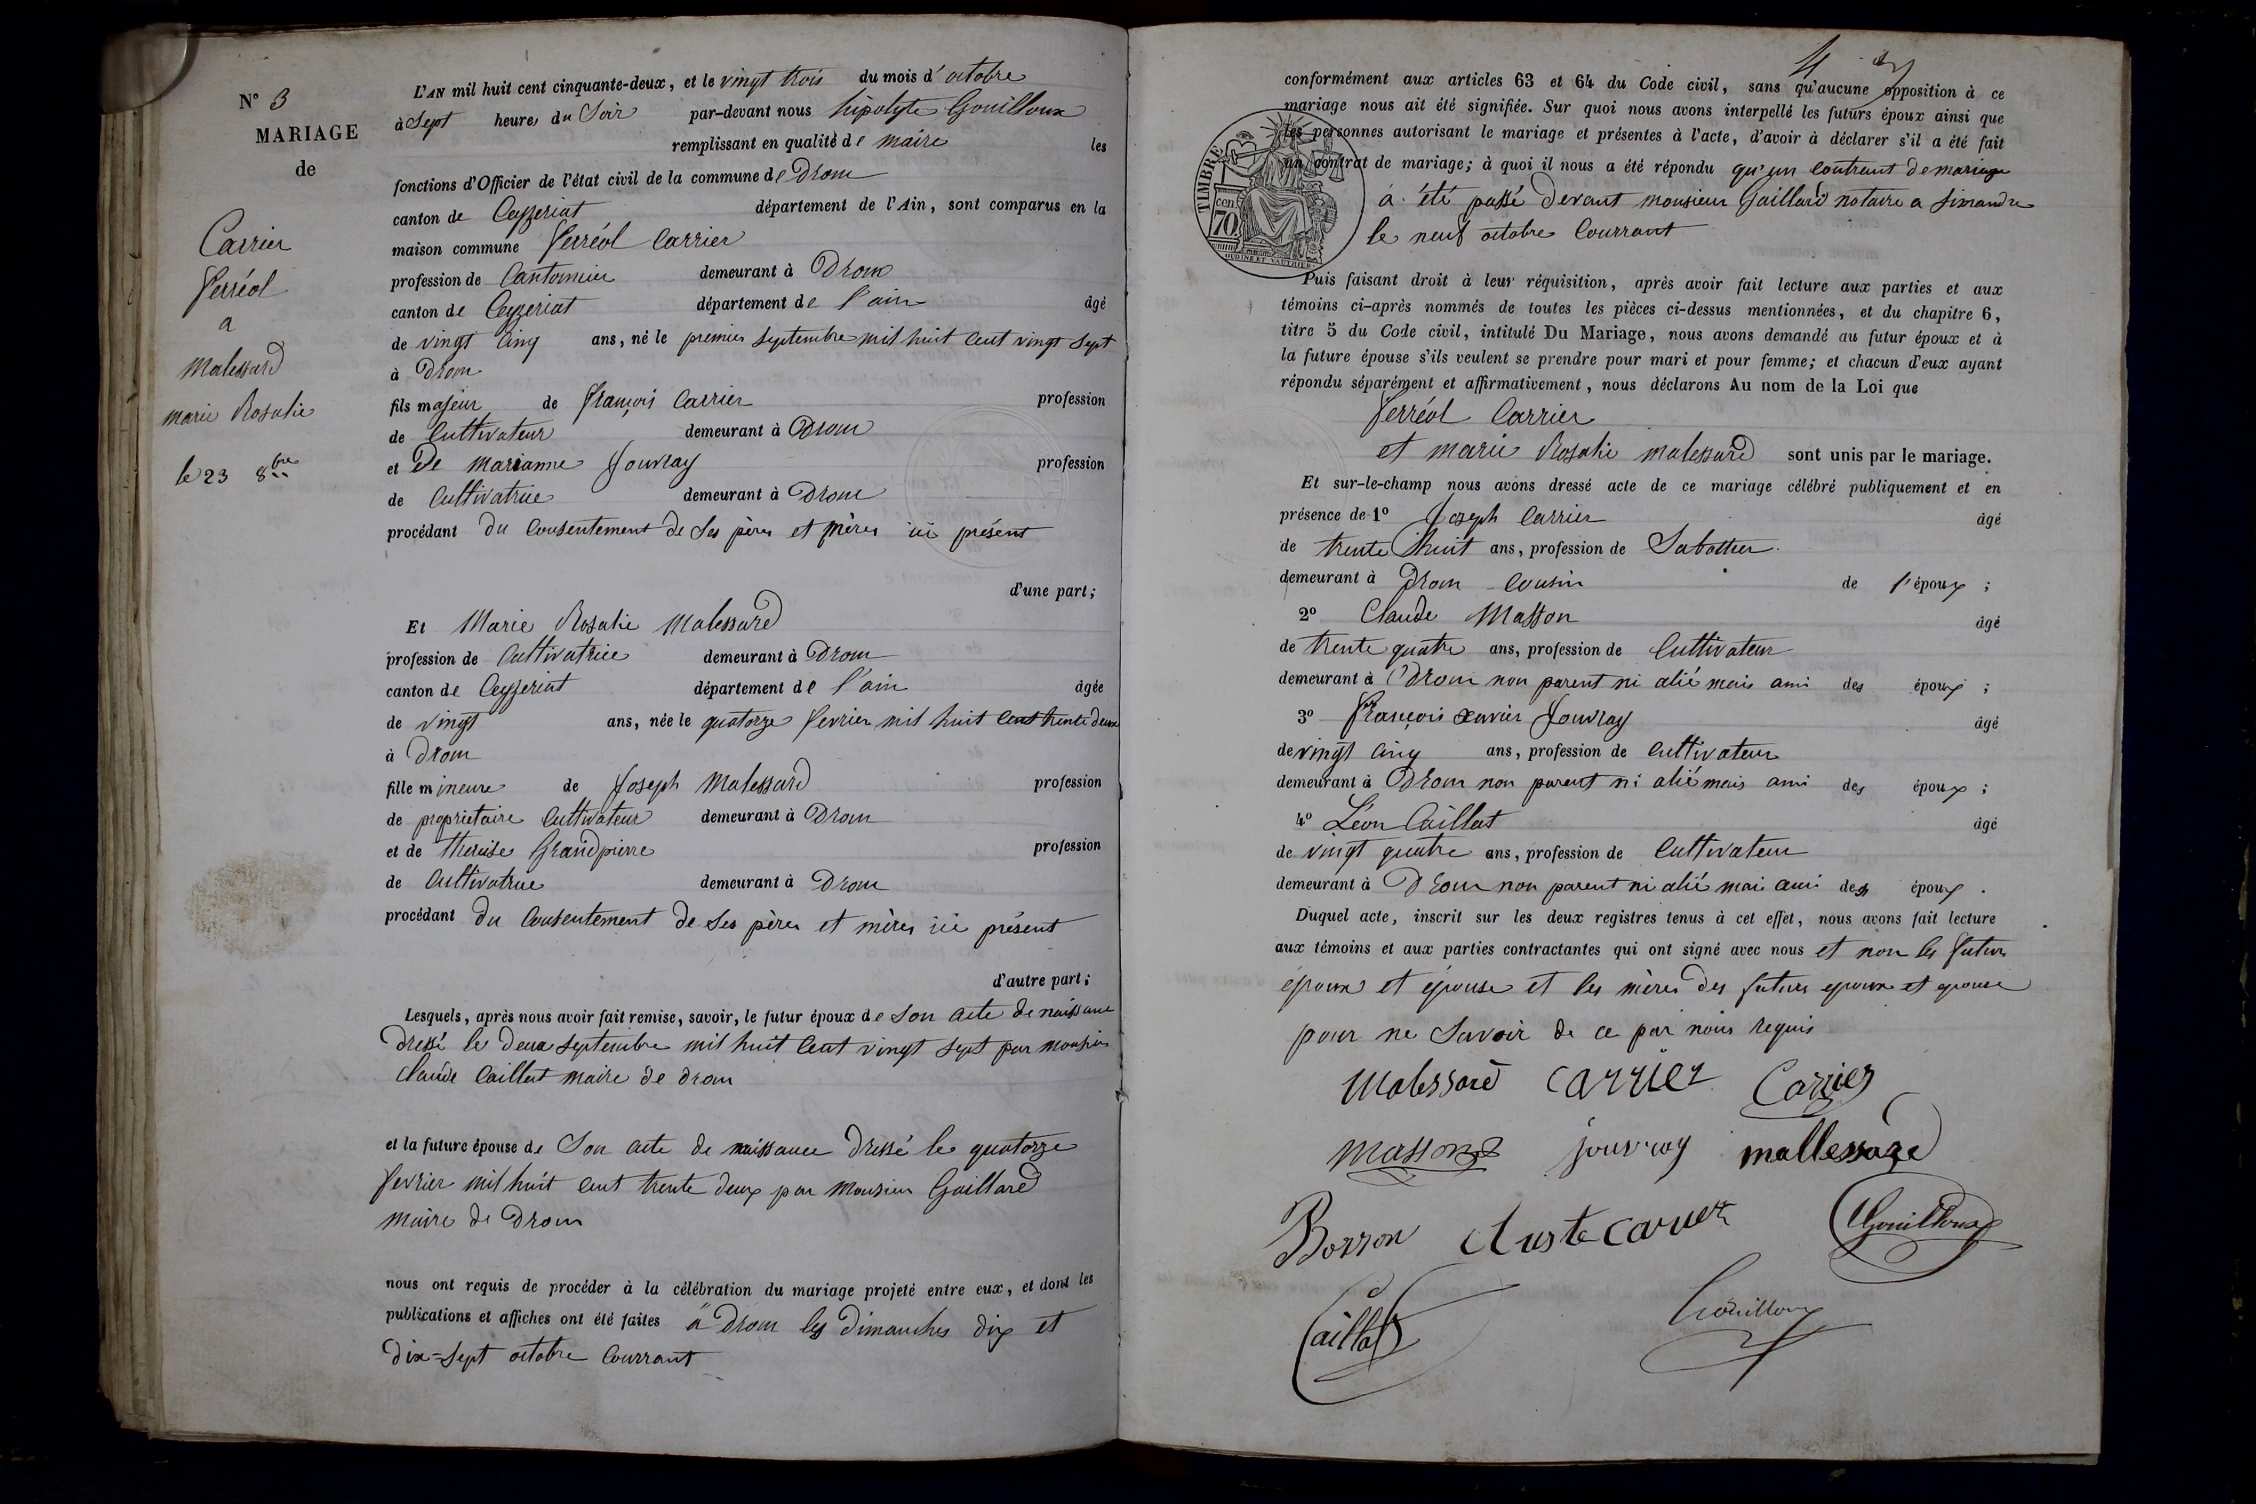 N° 3
MARIAGE
de
Carrier
Ferréol
a
Malessard
marie Rosalie
le 23 8bre
L'AN mil huit cent cinquante-deux, et le vingt trois du mois d'octobre
à Sept heures du Soir par-devant nous hipolyte Gouilloux
remplissant en qualité de maire les
fonctions d'Officier de l'état civil de la commune de Drom
canton de Ceyzeriat département de l'Ain, sont comparus en la
maison commune Ferréol Carrier
profession de Cantonnier demeurant à Drom
canton de Ceyzeriat département de l'ain âgé
de vingt cinq ans, né le premier septembre mil huit cent vingt sept
à Drom
fils majeur de François Carrier profession
de Cultivateur demeurant à Drom
et De Marianne Jouvray profession
de Cultivatrice demeurant à Drom
procédant du Consentement de Ses pères et mères ici présent
d'une part;
Et Marie Rosalie Malessard
profession de Cultivatrice demeurant à Drom
canton de Ceyzeriat département de l'ain âgée
de vingt ans, née le quatorze fevrier mil huit cent trente deux
à Drom
fille mineure de Joseph Malessard profession
de propriétaire Cultivateur demeurant à Drom
et de thereise Grandpierre profession
de Cultivatrice demeurant à Drom
procédant du Consentement de Ses pères et mères ici présent
d'autre part;
Lesquels, après nous avoir fait remise, savoir, le futur époux de Son acte de naissance
Dressé le Deux septembre mil huit Cent vingt sept par monsieur
Claude Caillat maire de drom
et la future épouse de Son acte de naissance Dressé le quatorze
fevrier mil huit cent trente deux par Monsieur Gaillard
Maire de Drom
nous ont requis de procéder à la célébration du mariage projeté entre eux, et dont les
publications et affiches ont été faites à Drom les Dimanches dix et
dix-sept octobre Courrant
conformément aux articles 63 et 64 du Code civil, sans qu'aucune opposition à ce
mariage nous ait été signifiée. Sur quoi nous avons interpellé les futurs époux ainsi que
les personnes autorisant le mariage et présentes à l'acte, d'avoir à déclarer s'il a été fait
un contrat de mariage; à quoi il nous a été répondu qu'un Contract de mariage
a été passé Devant monsieur Gaillard notaire a Simandre
le neuf octobre Courrant
TIMBRE
cen
70
OUDINE ET VAUTHIER
Puis faisant droit à leur réquisition, après avoir fait lecture aux parties et aux
témoins ci-après nommés de toutes les pièces ci-dessus mentionnées, et du chapitre 6,
titre 5 du Code civil, intitulé Du Mariage, nous avons demandé au futur époux et à
la future épouse s'ils veulent se prendre pour mari et pour femme; et chacun d'eux ayant
répondu séparément et affirmativement, nous déclarons Au nom de la Loi que
Ferréol Carrier
et marie Rosalie malessard sont unis par le mariage.
Et sur-le-champ nous avons dressé acte de ce mariage célébré publiquement et en
présence de 1° Joseph Carrier âgé
de trente huit ans, profession de Sabottier
demeurant à Drom Cousin de l'époux;
2° Claude Masson âgé
de trente quatre ans, profession de Cultivateur
demeurant à Drom non parent ni alié mais ami des époux;
3° François Xavier Jouvray âgé
de vingt cinq ans, profession de Cultivateur
demeurant à Drom non parent ni alié mais ami des époux;
4° Léon Caillat âgé
de vingt quatre ans, profession de Cultivateur
demeurant à Drom non parent ni alié mai ami des époux.
Duquel acte, inscrit sur les deux registres tenus à cet effet, nous avons fait lecture
aux témoins et aux parties contractantes qui ont signé avec nous et non les futurs
époux et épouse et les mères des futurs epoux et epouse
pour ne Savoir de ce par nous requis
Malessard carrier Carrier
Masson jouvray mallessard
Borron Carrier Gouilloux
Caillat Gouilloux